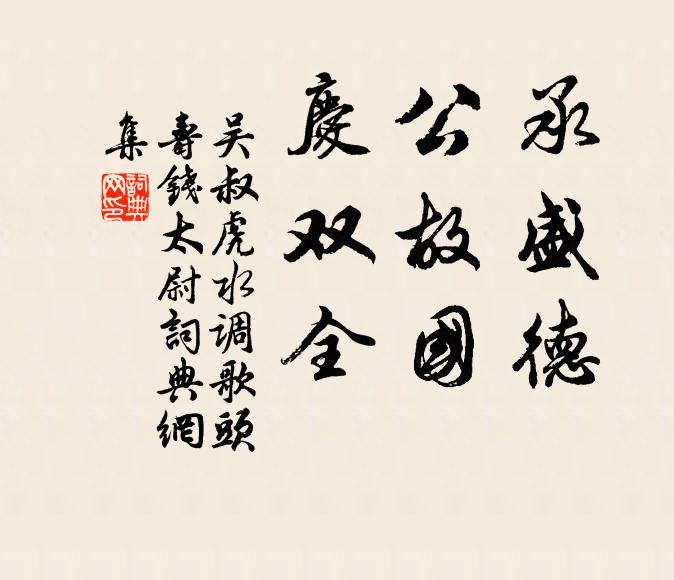 承盛德
公故國
慶双全
吴叔虎水调歌頭
壽錢太尉詞典網
集
詞典
网印